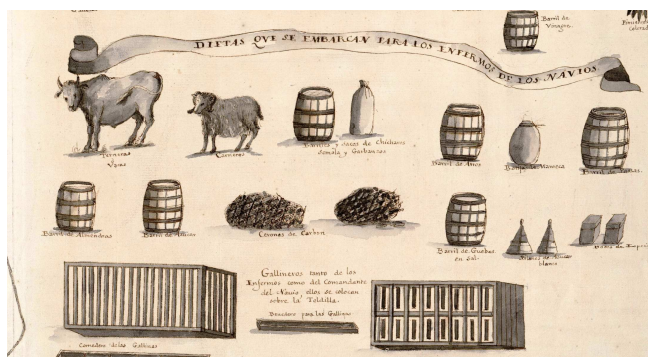 Barril de
Vinagre.
DIETAS QUE SE EMBARCAN PARA LOS ENFERMOS DE LOS NAVIOS
Terneras
y
Vacas
Carneros
Barriles y sacos de Chicharos
Semola y Garbanzos
Barril de Arros
de Manteca
Barril de
Barril de Almendras
Barril de
Cerones de Carbon.
Barril de Guebos
en Sal.
blanco
Gallineros tanto de los
Enfermos como del Comandante
del Navio, ellos se colocan
sobre la Toldilla.
Bevedero para las Gallinas
Comedero de las Gallinas